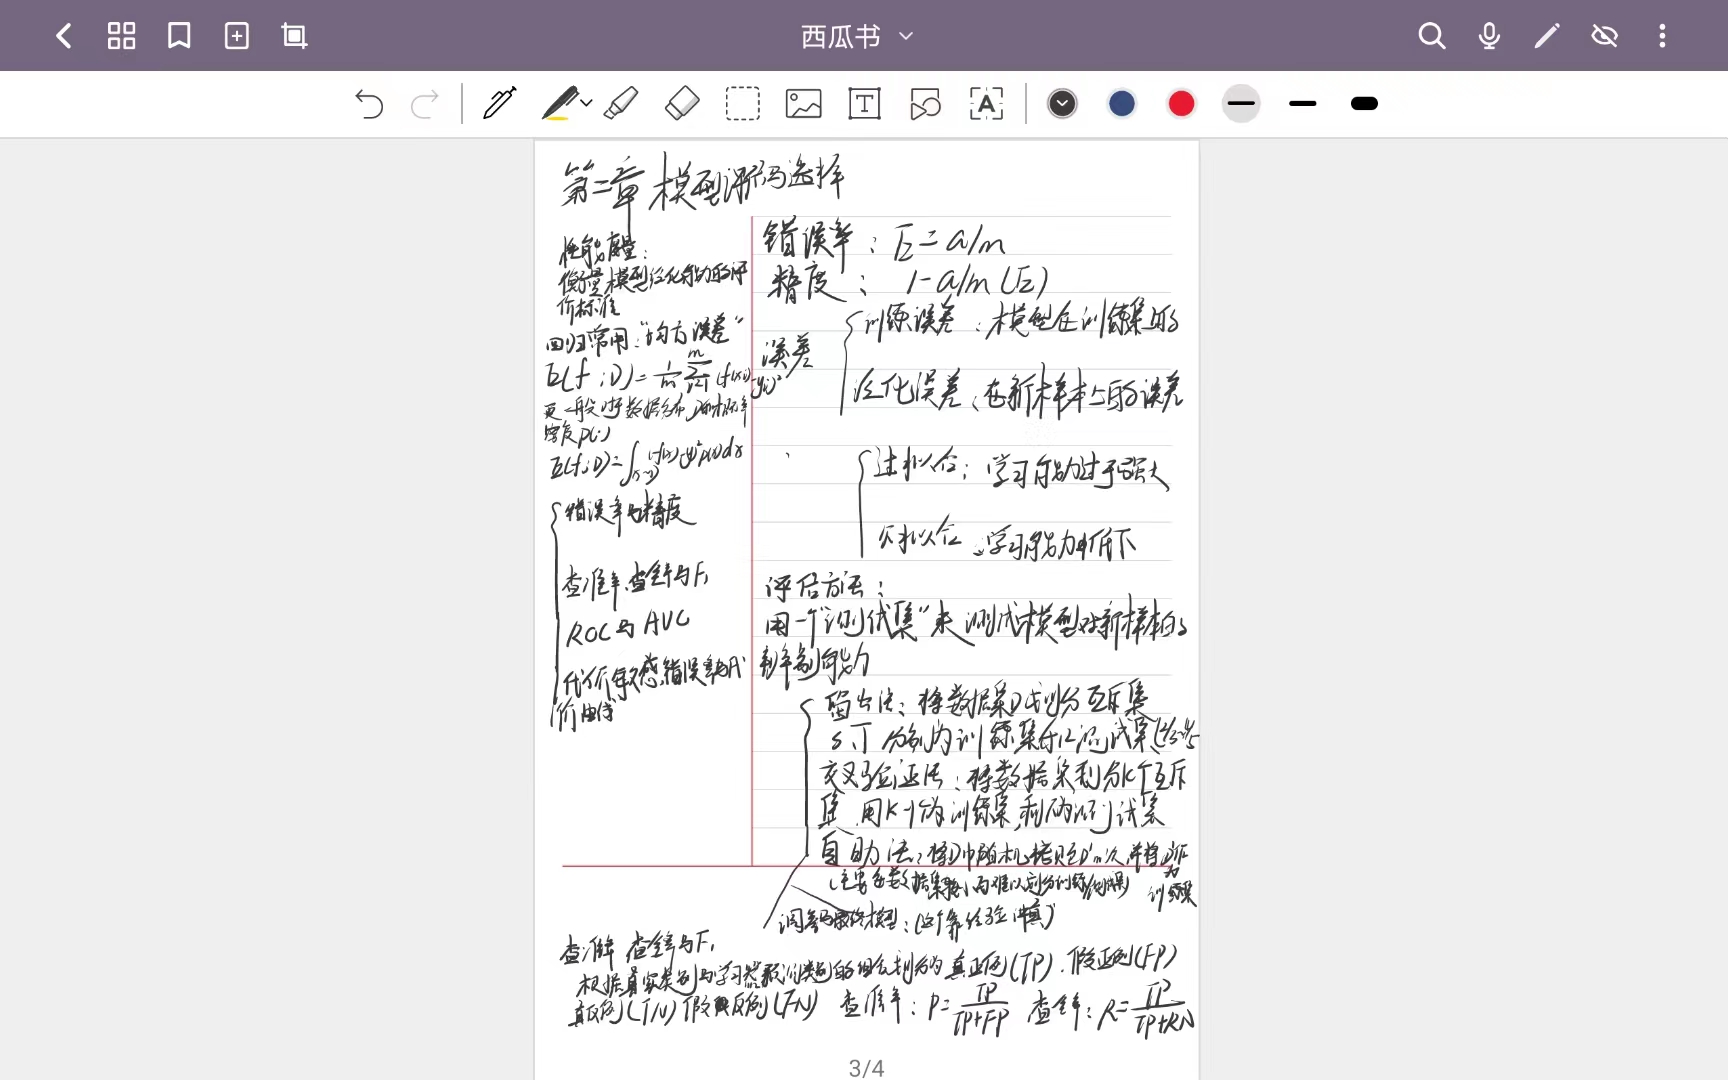 西瓜书
第二章 模型评估与选择
性能度量:
衡量模型泛化能力的评
价标准
回归常用:“均方误差”
E(f;D)=1/m Σ(i=1→m)(f(xi)-yi)²
更一般对于数据分布D和概率
密度p(·)
E(f;D)=∫x~D(f(x)-y)²p(x)dx
错误率与精度
查准率、查全率与F1
ROC与AUC
代价敏感错误率与代
价曲线
错误率:E=a/m
精度: 1-a/m(E)
误差
训练误差:模型在训练集的
泛化误差:在新样本上的误差
过拟合:学习能力过于强大
欠拟合:学习能力低下
评估方法:
用一个“测试集”来测试模型对新样本的
判别能力
留出法:将数据集D划分互斥集
S、T 分别为训练集和测试集(2/3~4/5
交叉验证法:将数据集划分k个互斥
集,用k-1个为训练集,剩的为测试集
自助法:将D中随机
训练集
调参与最终模型:
查准率 查全率与F1
根据真实类别与学习器预测类别的组合划分为真正例(TP).假正例(FP)
真反例(TN)假反例(FN) 查准率:P=TP/(TP+FP) 查全率:R=TP/(TP+RN
3/4